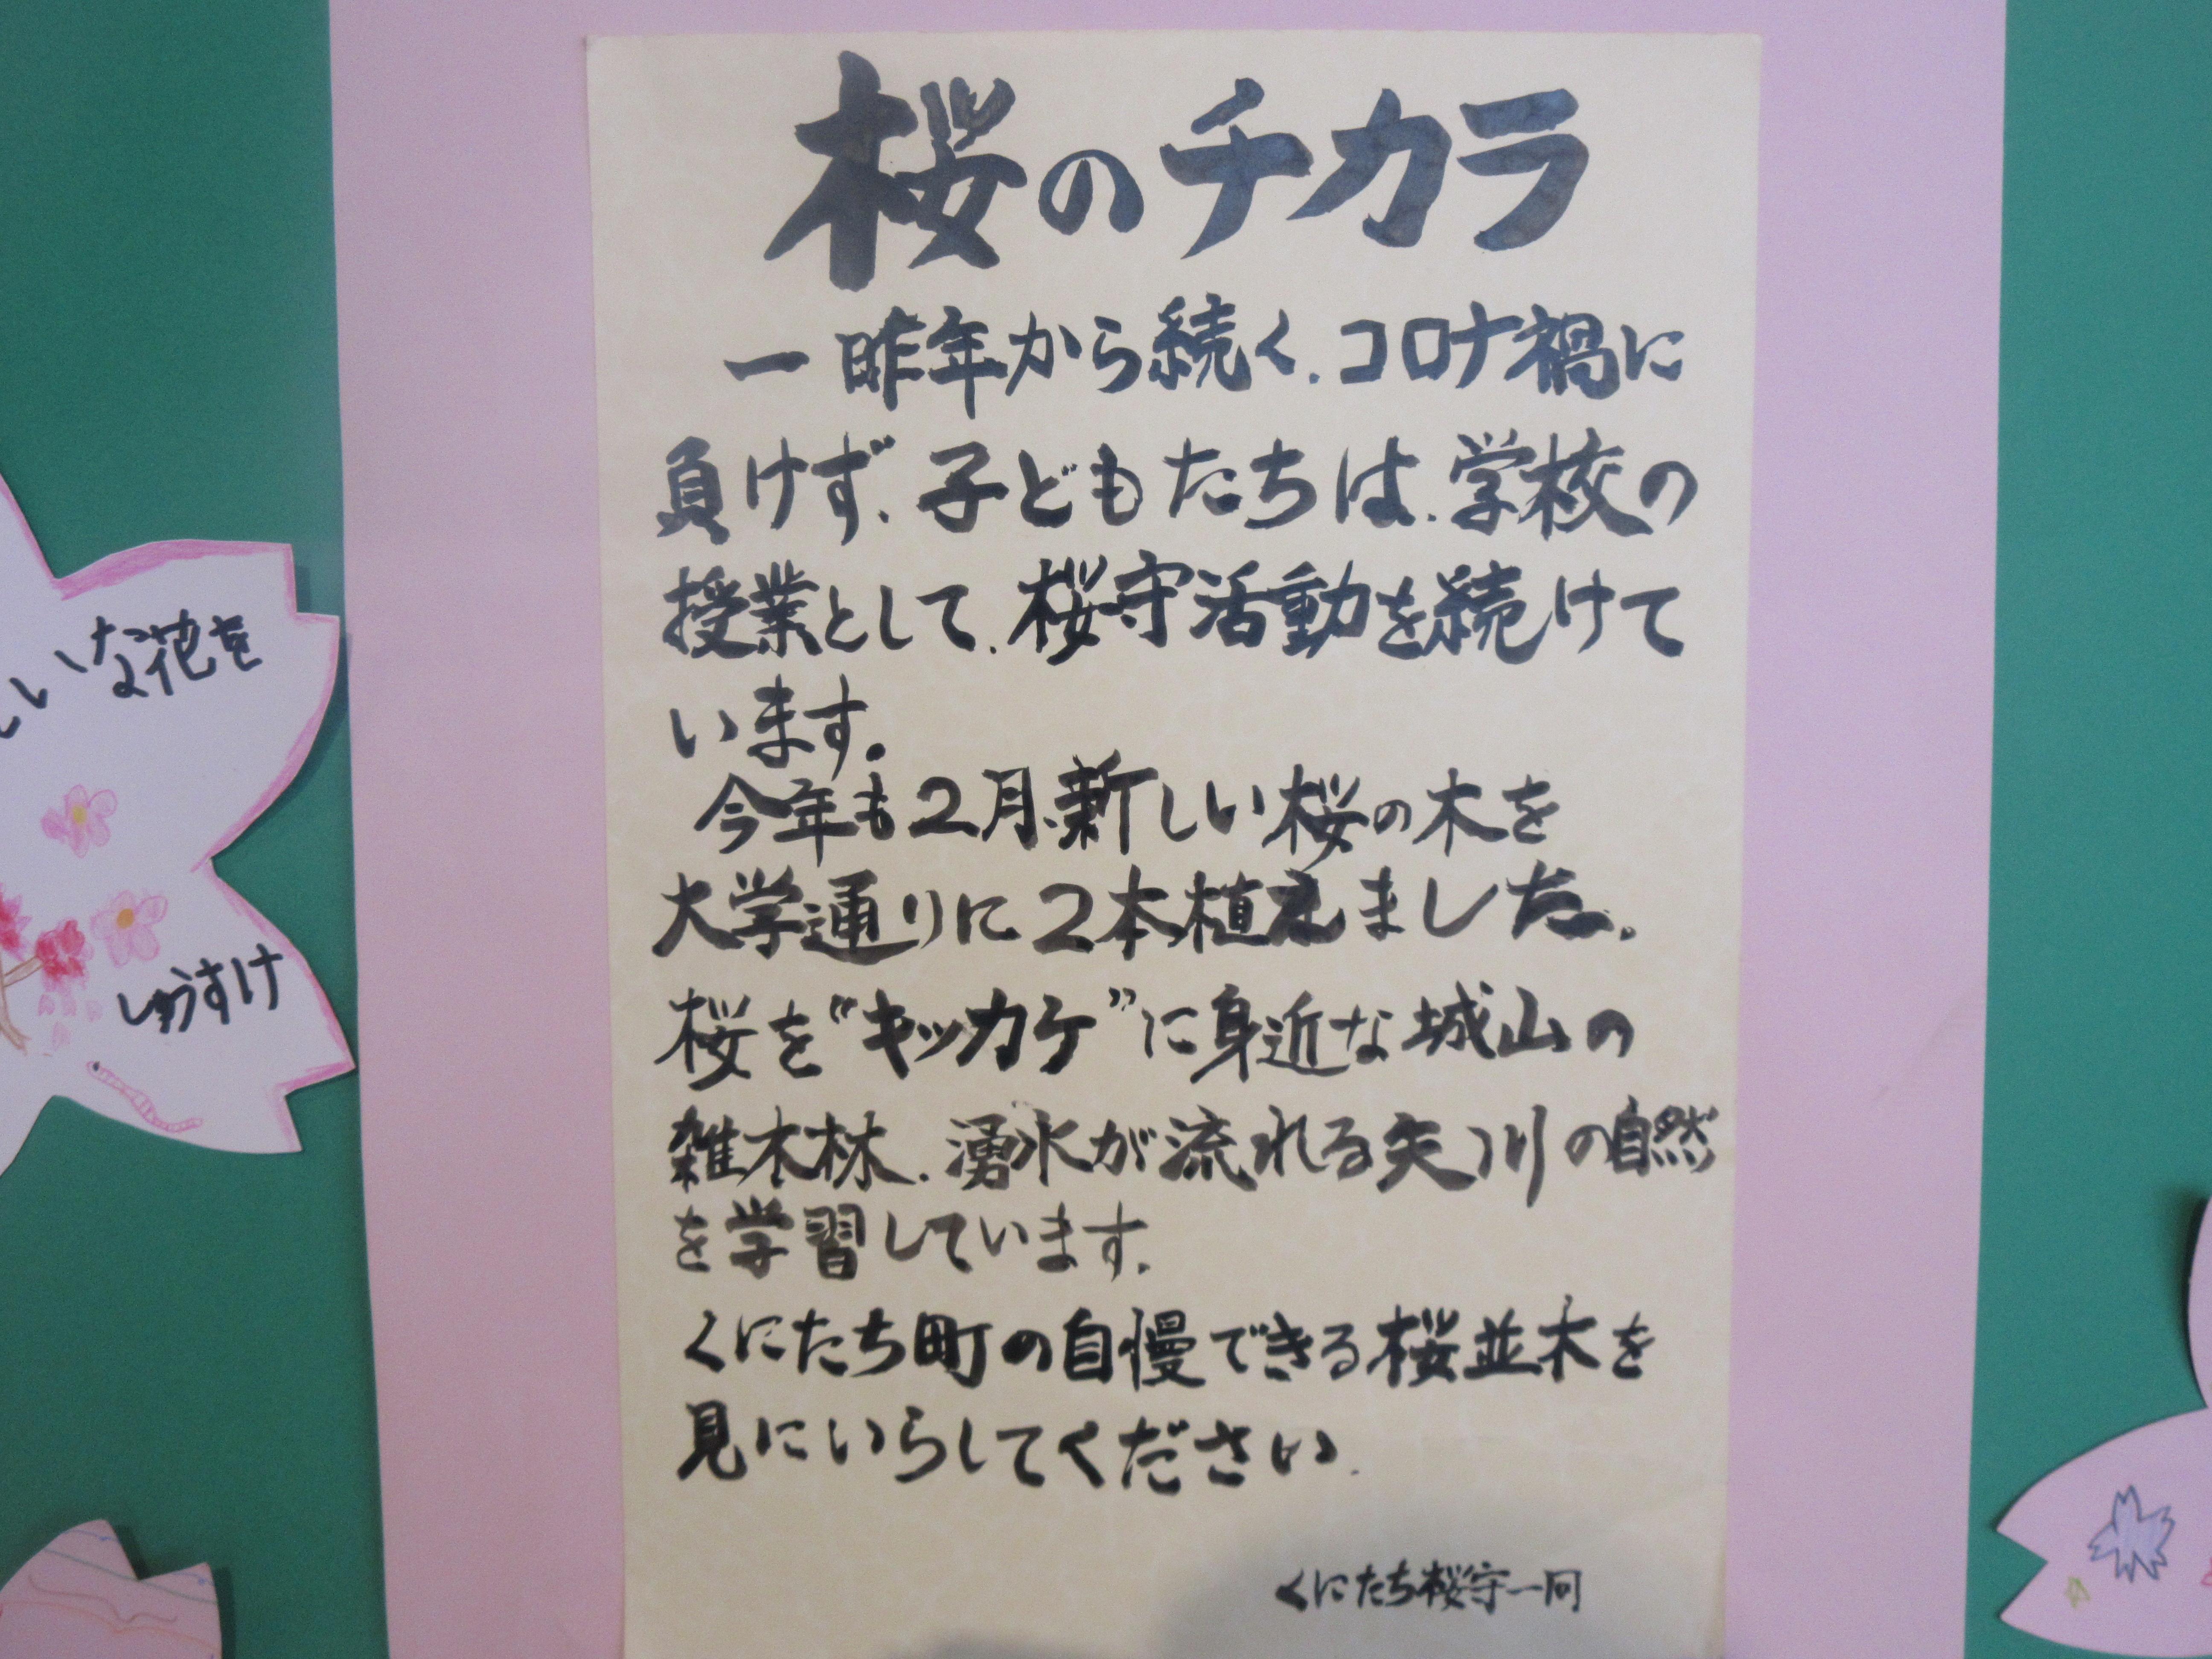 桜のチカラ
一昨年から続く、コロナ禍に
負けず、子どもたちは、学校の
授業として、桜守活動を続けて
います。
今年も2月、新しい桜の木を
大学通りに2本植えました。
桜を“キッカケ”に身近な城山の
雑木林、湧水が流れる矢川の自然
を学習しています。
くにたち町の自慢できる桜並木を
見にいらしてください。
くにたち桜守一同
いな花を
しゅうすけ